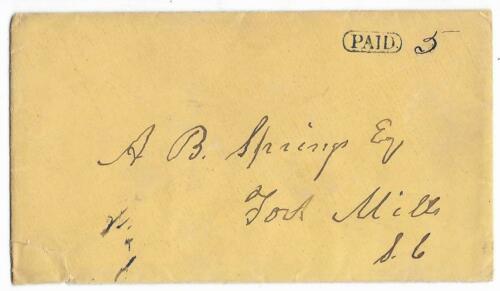 PAID. 5
A B. Springs Eq
Fort Mills
S. C